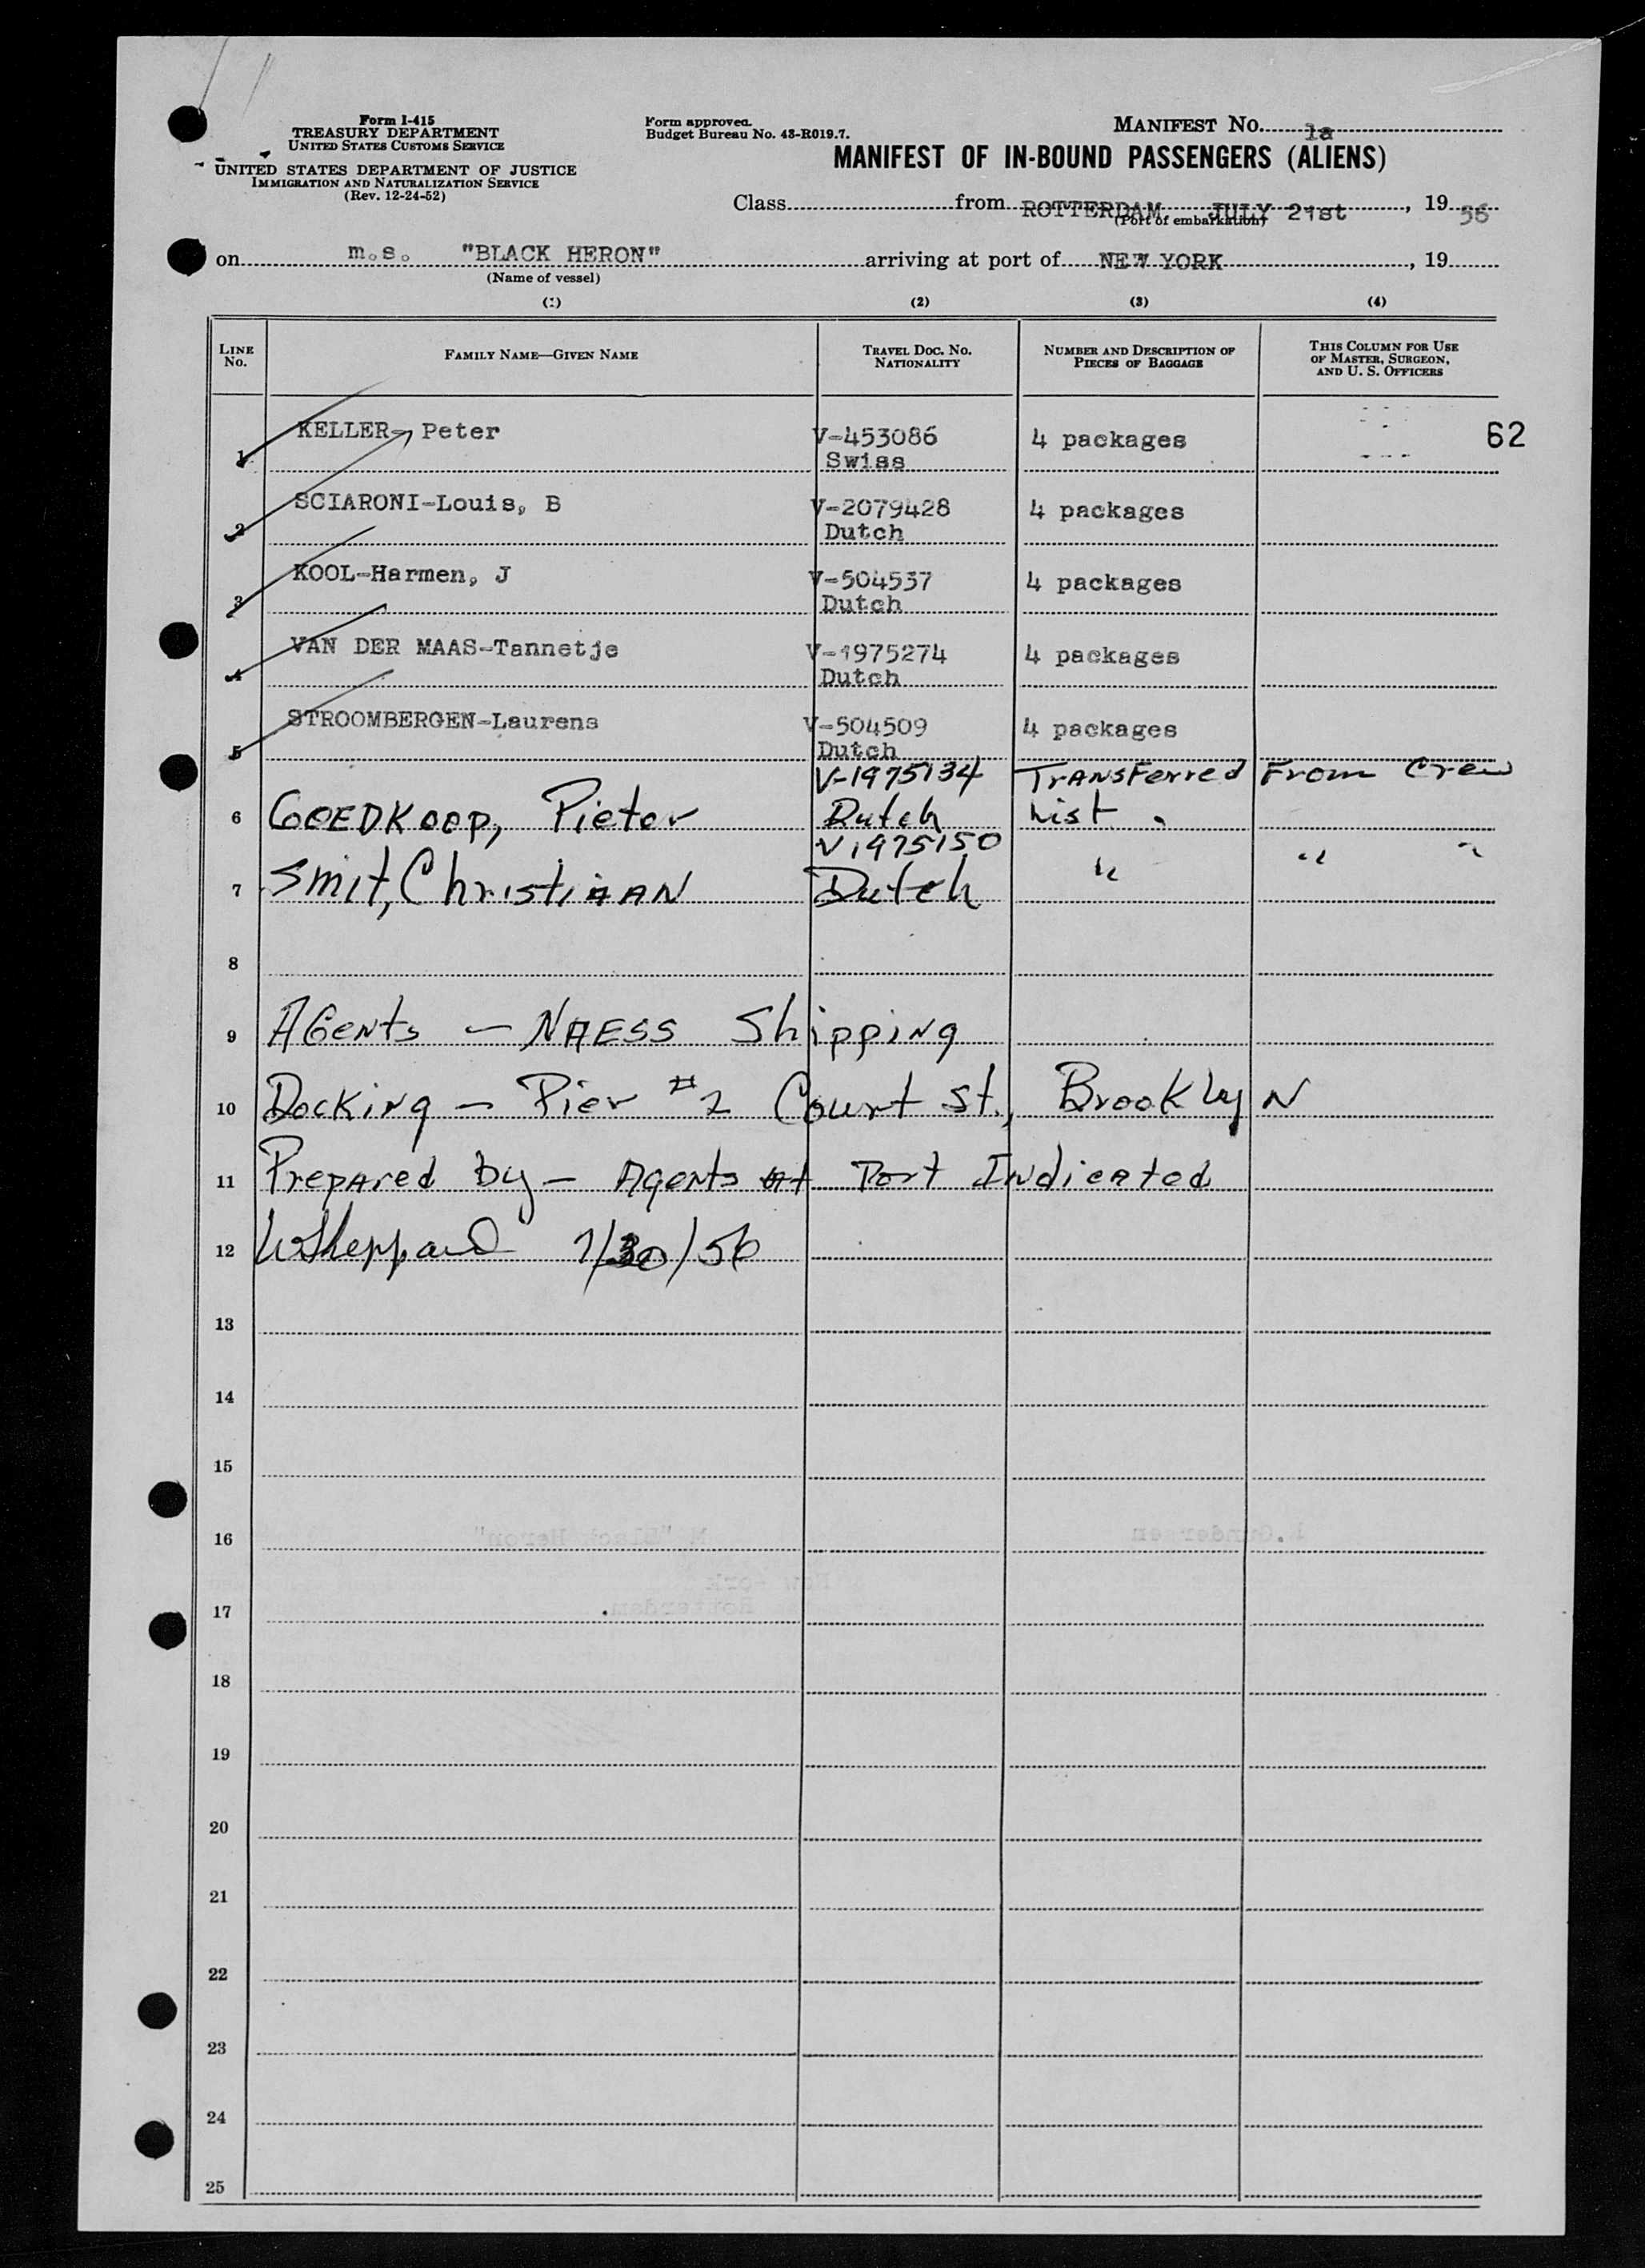 Form I-415
TREASURY DEPARTMENT
UNITED STATES CUSTOMS SERVICE
UNITED STATES DEPARTMENT OF JUSTICE
IMMIGRATION AND NATURALIZATION SERVICE
(Rev. 12-24-52)
Form approved.
Budget Bureau No. 43-R019.7.
MANIFEST NO. 1a
MANIFEST OF IN-BOUND PASSENGERS (ALIENS)
Class from ROTTERDAM JULY 21st, 19 56
(Port of embarkation)
on m.s. "BLACK HERON" arriving at port of NEW YORK, 19
(Name of vessel)
(1) (2) (3) (4)
LINE No. FAMILY NAME—GIVEN NAME TRAVEL DOC. NO. NATIONALITY NUMBER AND DESCRIPTION OF PIECES OF BAGGAGE THIS COLUMN FOR USE OF MASTER, SURGEON, AND U. S. OFFICERS
KELLER-, Peter V-453086 4 packages 62
1 Swiss
SCIARONI-Louis, B V-2079428 4 packages
2 Dutch
KOOL-Harmen, J V-504537 4 packages
3 Dutch
VAN DER MAAS-Tannetje V-1975274 4 packages
4 Dutch
STROOMBERGEN-Laurens V-504509 4 packages
5 Dutch
V-1975134 Transferred From Crew
6 GOEDKOOP, Pieter Dutch List.
V1975150
7 Smit, Christiaan Dutch " " "
8
9 Agents - NAESS Shipping
10 Docking - Pier #2 Court St., Brooklyn
11 Prepared by - Agents at Port Indicated
12 W Sheppard 7/30/56
13
14
15
16
17
18
19
20
21
22
23
24
25